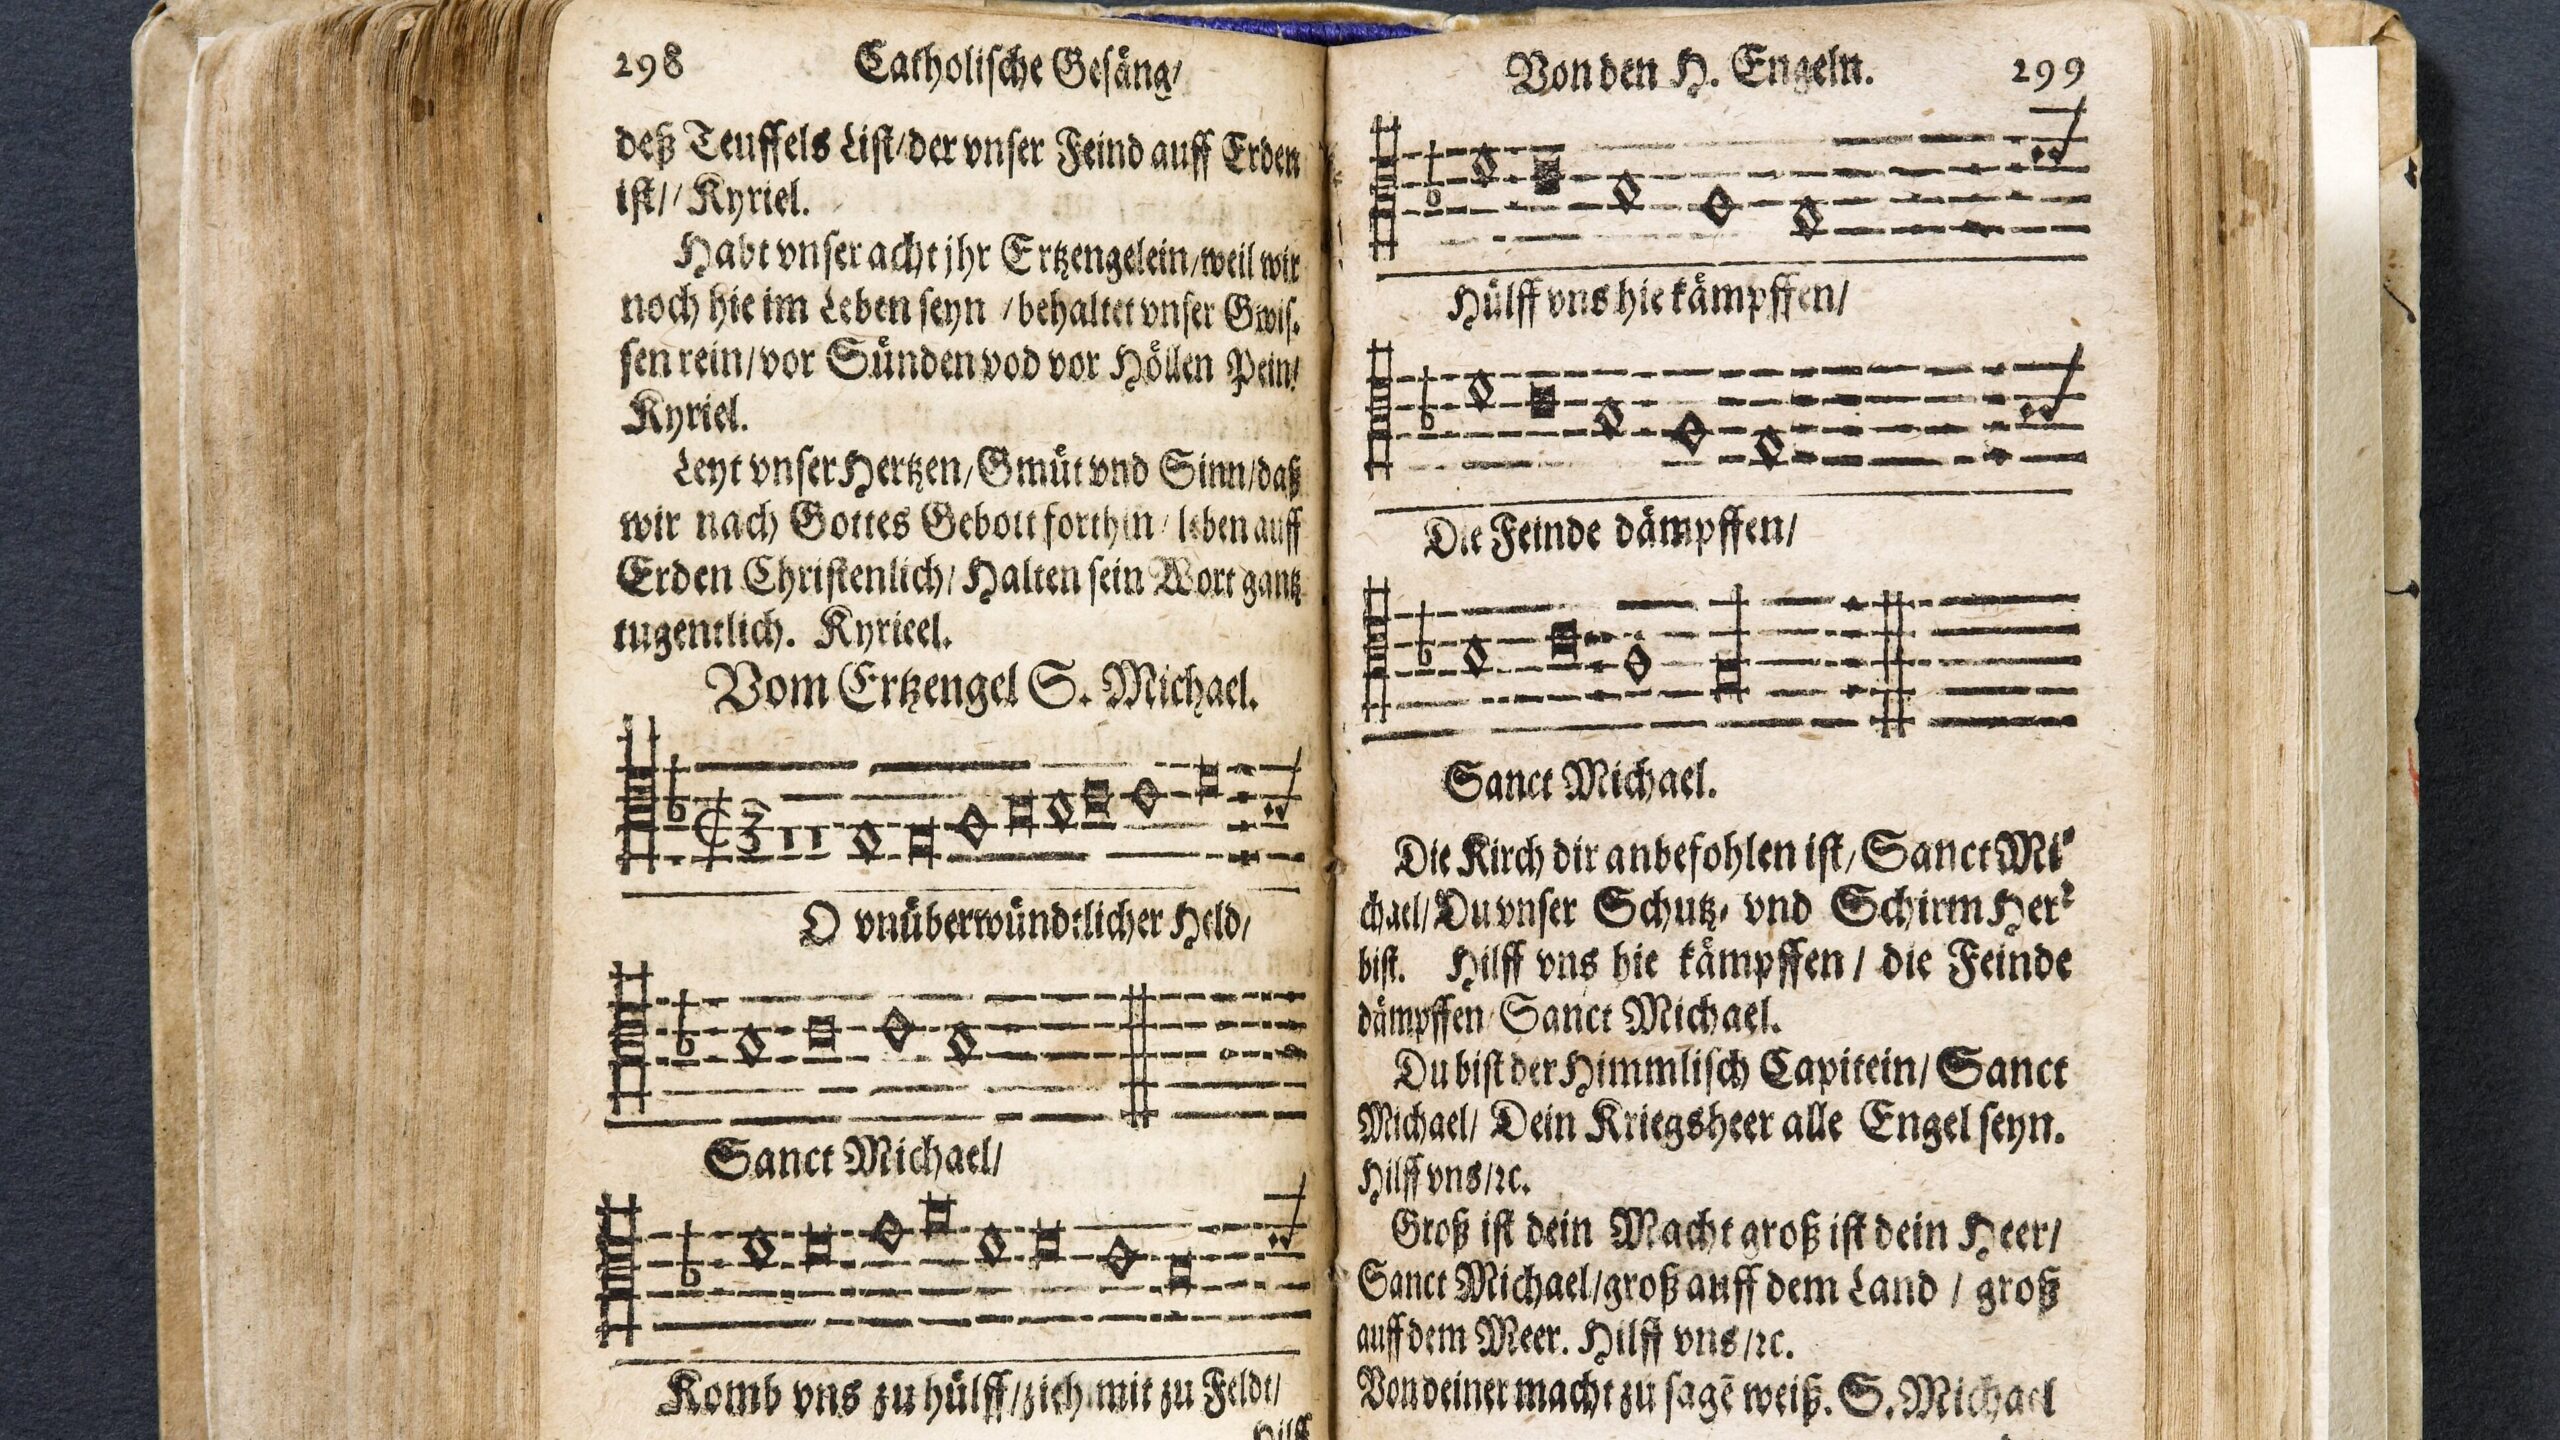 298 Catholische Gesäng/
deß Teuffels List/der vnser Feind auff Erden
ist// Kyriel.
Habt vnser acht jhr Ertzengelein/weil wir
noch hie im Leben seyn /behaltet vnser Gwis-
sen rein/vor Sünden vod vor Höllen Pein/
Kyriel.
Leyt vnser Hertzen/Gmüt vnd Sinn/daß
wir nach Gottes Gebott forthin/ leben auff
Erden Christenlich/Halten sein Wort gantz
tugentlich. Kyrieel.
Vom Ertzengel S. Michael.
O vnüberwündtlicher Held/
Sanct Michael/
Komb vns zu hülff/zieh mit zu Feldt/
Hilff
Von den H. Engeln. 299
Hülff vns hie kämpffen/
Die Feinde dämpffen/
Sanct Michael.
Die Kirch dir anbefohlen ist/Sanct Mi-
chael/Du vnser Schutz- vnd Schirm Her-
bist. Hilff vns hie kämpffen / die Feinde
dämpffen Sanct Michael.
Du bist der Himmlisch Capitein/Sanct
Michael/ Dein Kriegsheer alle Engel seyn.
Hilff vns/ꝛc.
Groß ist dein Macht groß ist dein Heer/
Sanct Michael/groß auff dem Land / groß
auff dem Meer. Hilff vns/ꝛc.
Von deiner macht zu sagē weiß. S. Michael